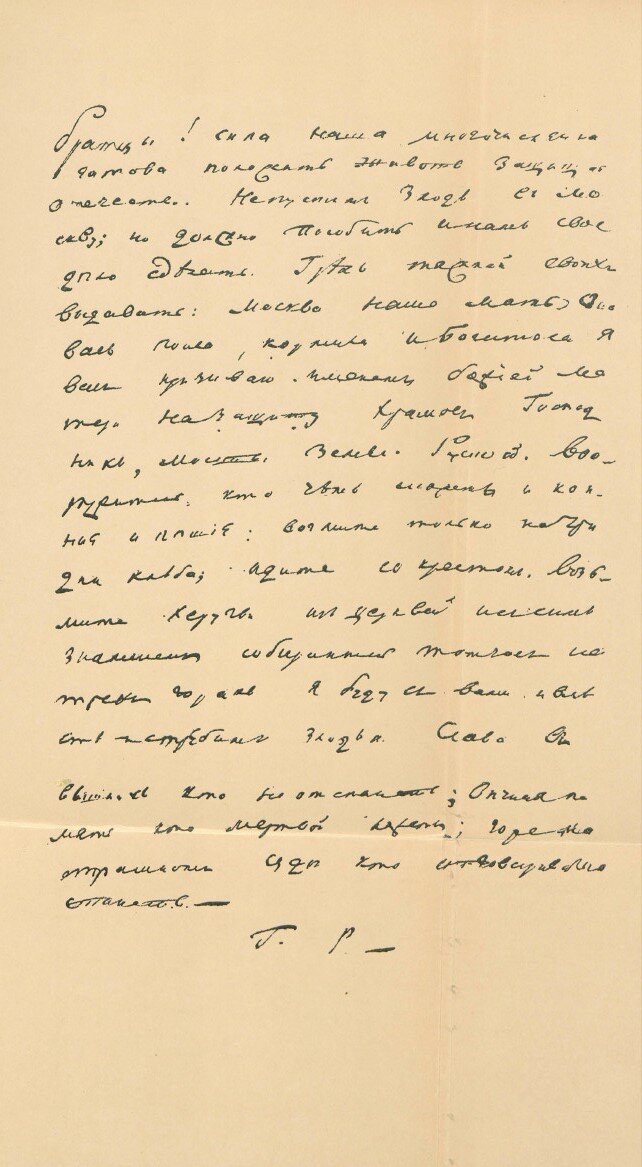 братцы! сила наша многочисленна
гатова положить животъ защищая
отечеств.. Непустить Злодѣя въ Мо
скву; но должно пособить инамъ свое
дѣло сдѣлать. Грѣхъ тяжкой своихъ
выдавать: Москва наша мать, Она
васъ поила, кормила и богатила Я
васъ призываю имянемъ божіей Ма
тери на защиту Храмовъ Господ
нихъ, Москвы, Земли Руской. Воо-
ружитесь, кто чѣмъ можетъ и кон-
ныя и пѣшія: возмите только на три
дни хлѣба; идите со крестомъ. возь-
мите херугви изъ церквей и ссимъ
знаменіемъ собирайтесь тотчасъ на
трехъ горахъ Я буду съ вами и вмѣ
стѣ истребимъ Злодѣя. Слава въ
вышнихъ кто не отстанетъ; Вѣчная па
мять кто мертвой ляжетъ; горе на
страшномъ судѣ кто отговариваться
станетъ. —
Г. Р. —